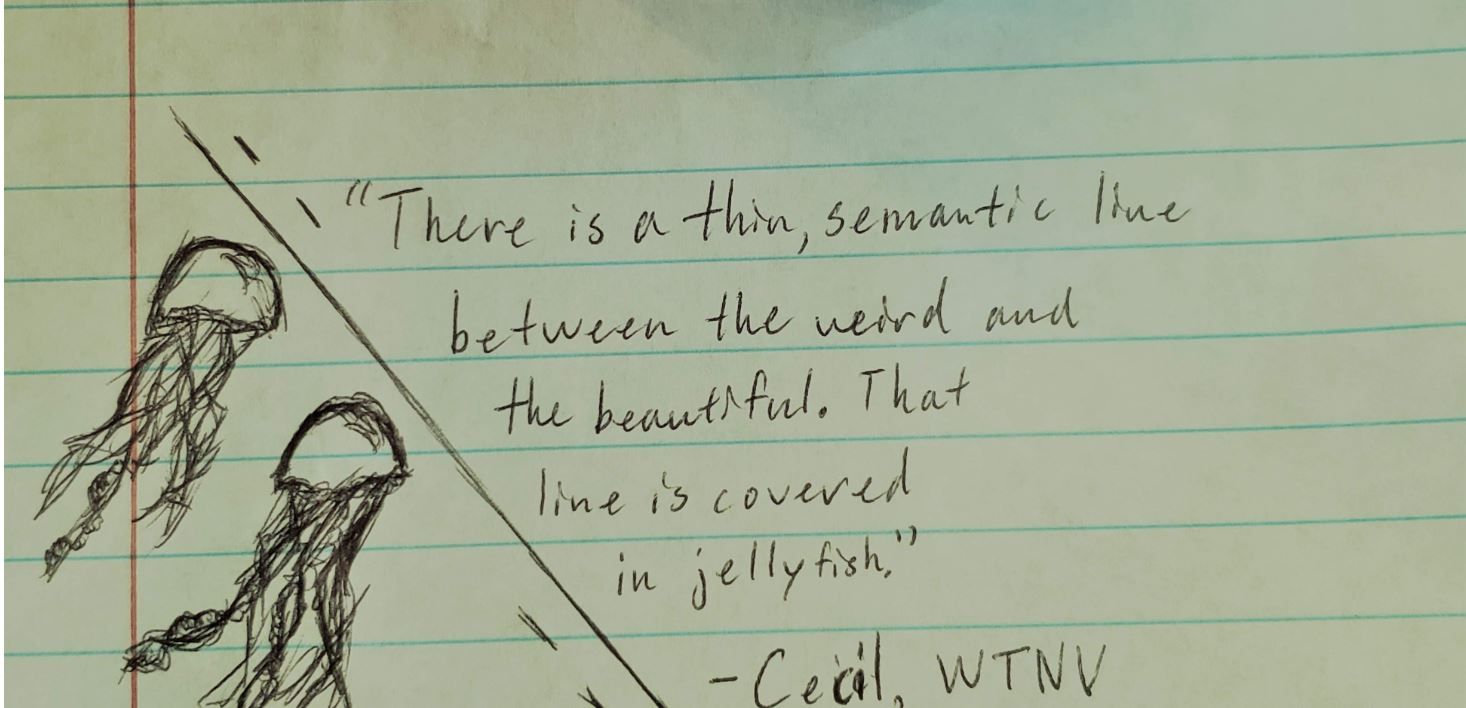 "There is a thin, semantic line
between the weird and
the beautiful. That
line is covered
in jellyfish."
-Cecil, WTNV